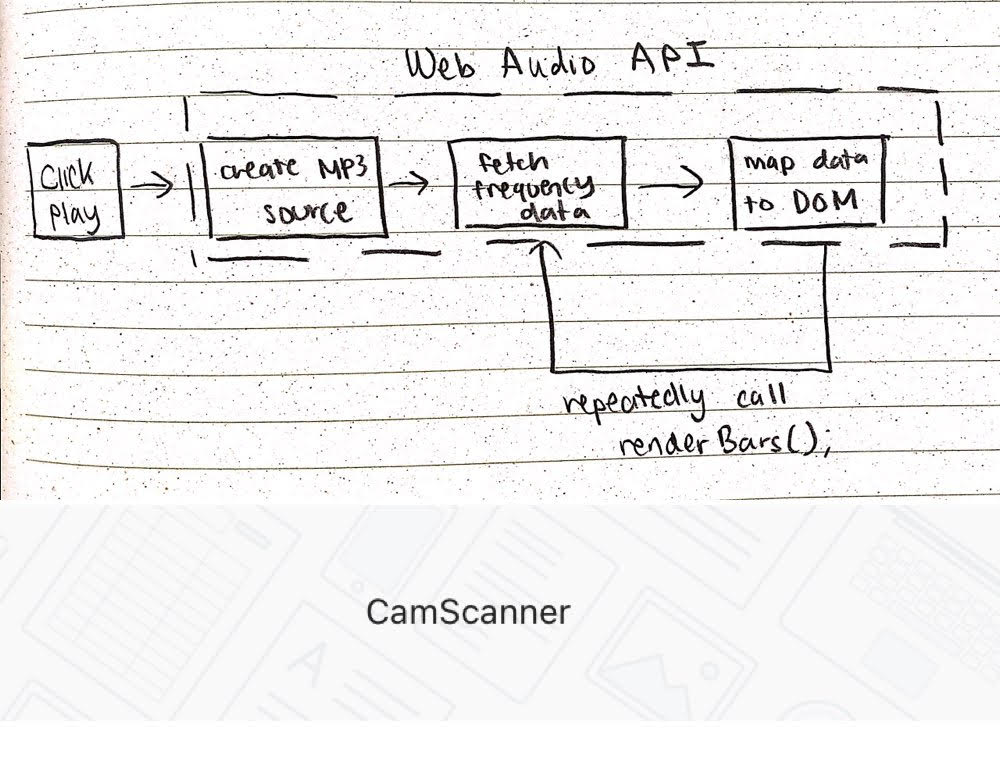 Web Audio API
Click
play
create MP3
source
fetch
frequency
data
map data
to DOM
repeatedly call
renderBars();
CamScanner